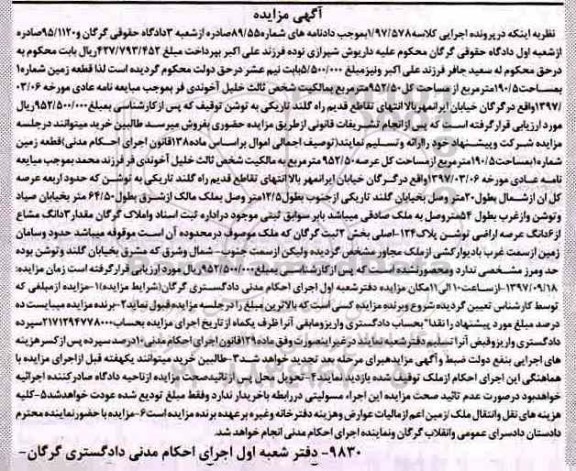 آگهی مزایده
نظریه اینکه درپرونده اجرایی کلاسه۱/۹۷/۵۷۸بموجب دادنامه های شماره۸۹/۵۵صادره ازشعبه ۳دادگاه حقوقی گرگان و۹۵/۱۱۲۰صادره
ازشعبه اول دادگاه حقوقی گرگان محکوم علیه داریوش شیرازی نوده فرزند علی اکبر بپرداخت مبلغ ۴۲۷/۷۹۳/۴۵۲ریال بابت محکوم به
درحق محکوم له سعید جافر فرزند علی اکبر ونیزمبلغ ۵/۵۰۰/۰۰۰بابت نیم عشر درحق دولت محکوم گردیده است لذا قطعه زمین شماره۱
بمساحت ۱۹۰/۵مترمربع از مساحت کل ۹۵۲/۵۰مترمربع بمالکیت شخص ثالث خلیل آخوندی فر بموجب مبایعه نامه عادی مورخه ۰۳/۰۶
/۱۳۹۷واقع درگرگان خیابان ایرانمهربالا انتهای تقاطع قدیم راه گلند تاریکی به توشن توقیف که پس ازکارشناسی بمبلغ ۹۵۲/۵۰۰/۰۰۰ریال
مورد ارزیابی قرارگرفته است که پس ازانجام تشریفات قانونی ازطریق مزایده حضوری بفروش میرسد طالبین خرید میتوانند درجلسه
مزایده شرکت وپیشنهاد خود راارائه وتسلیم نمایند(توصیف اجمالی اموال براساس ماده۱۳۸قانون اجرای احکام مدنی)قطعه زمین
شماره۱بمساحت۱۹۰/۵مترمربع ازمساحت کل عرصه ۹۵۲/۵۰ مترمربع به مالکیت شخص ثالث خلیل آخوندی فر فرزند محمد بموجب مبایعه
نامه عادی مورخه ۱۳۹۷/۰۳/۰۶واقع درگرگان خیابان ایرانمهر بالا انتهای تقاطع قدیم راه گلند تاریکی به توشن که حدود اربعه عرصه
کل ان ازشمال بطول۲۰متر وصل بخیابان گلند تاریکی ازجنوب بطول۱۲/۵متر وصل بملک مالک ازشرق بطول ۶۴/۵۰ متر بخیابان صیاد
وتوشن وازغرب بطول ۵۴متروصل به ملک صادقی میباشد بابر سوابق ثبتی موجود دراداره ثبت اسناد واملاک گرگان مقدار۳دانگ مشاع
از۶دانگ عرصه اراضی توشن پلاک۱۲۴-اصلی بخش ۲ثبت گرگان که ملک موصوف درمحدوده آن است موقوفه میباشد حدود وسامان
زمین ازسمت غرب بادیوارکشی ازملک مجاور مشخص گردیده ولیکن ازسمت جنوب شمال وشرق که مشرق بخیابان گلند وتوشن بوده
حد ومرز مشخصی ندارد ومحصورنشده است که پس ازکارشناسی بمبلغ۹۵۲/۵۰۰/۰۰۰ریال مورد ارزیابی قرارگرفته است زمان مزایده:
۱۳۹۷/۰۹/۱۸-ازساعت۱۰الی۱۱مکان مزایده دفترشعبه اول اجرای احکام مدنی دادگستری گرگان(شرایط مزایده)۱-مزایده ازمبلغی که
توسط کارشناس تعیین گردیده شروع وبرنده مزایده کسی است که بالاترین مبلغ را درجلسه مزایده قبول نماید۲-برنده مزایده میبایست ده
درصد مبلغ مورد پیشنهاد را نقدا"بحساب دادگستری واریزومابقی آنرا ظرف یکماه از تاریخ اجرای مزایده بحساب۲۱۷۱۲۹۴۷۷۸۰۰۰سپرده
دادگستری واریزوفیش آنرا تسلیم دفترشعبه نمایند درغیراینصورت وفق ماده۱۲۹قانون اجرای احکام مدنی۱۰درصد سپرده پس ازکسرهزینه
های اجرایی بنفع دولت ضبط و آگهی مزایدهبرای مرحله بعد تجدید خواهد شد۳-طالبین خرید میتوانند یکهفته قبل ازاجرای مزایده با
هماهنگی این اجرای احکام ازملک توقیف شده بازدید نمایند۴-تحویل محل پس از تائید صحت مزایده ازناحیه دادگاه صادرکننده اجرائیه
خواهدبود درصورت عدم تائید صحت مزایده این اجراء مسئولیتی دررابطه باخریدار ندارد وفقط مبلغ تودیع شده عودت خواهدشد۵-کلیه
هزینه های نقل وانتقال ملک زمین اعم ازمالیات عوارض وهزینه دفترخانه وغیره برعهده برنده مزایده است۶-مزایده با حضورنماینده محترم
دادستان دادسرای عمومی وانقلاب گرگان ونماینده اجرای احکام مدنی انجام خواهد شد.
۹۸۳۰- دفتر شعبه اول اجرای احکام مدنی دادگستری گرگان-